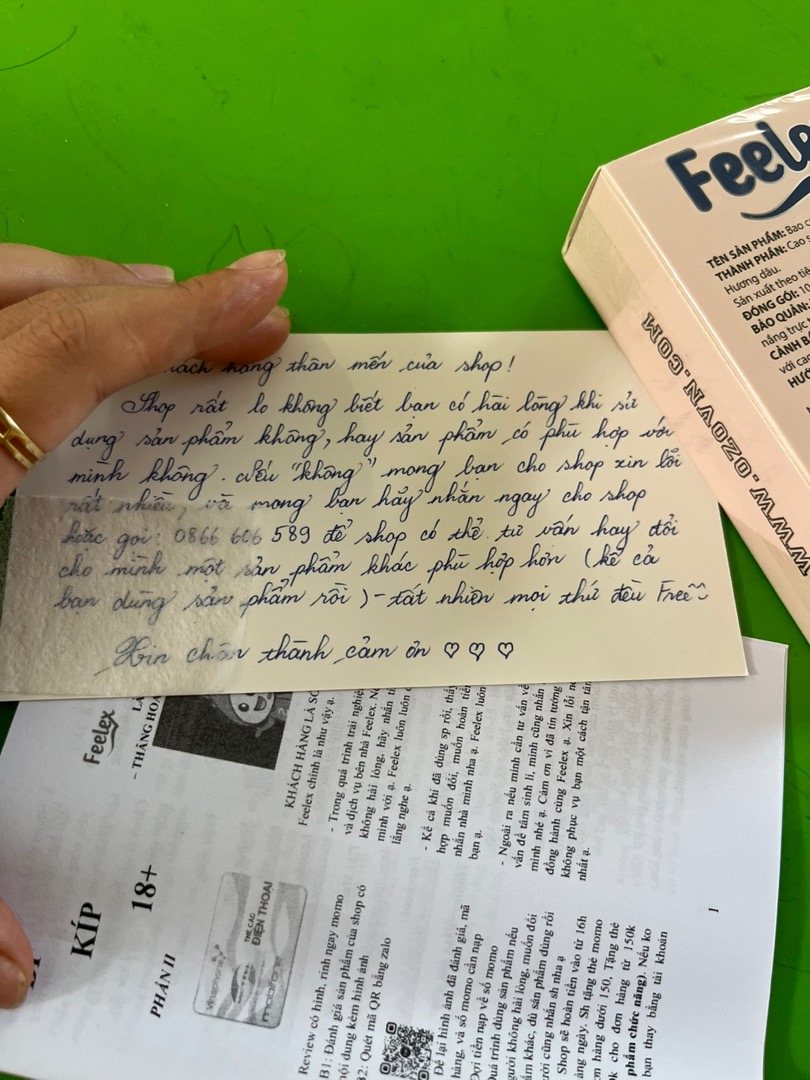 hàng thân mến của shop!
Shop rất lo không biết bạn có hài lòng khi sử
dụng sản phẩm không, hay sản phẩm có phù hợp với
mình không. Nếu "không" mong bạn cho shop xin lỗi
rất nhiều, và mong bạn hãy nhắn ngay cho shop
hoặc gọi: 0866 606 589 để shop có thể tư vấn hay đổi
cho mình một sản phẩm khác phù hợp hơn (kể cả
bạn dùng sản phẩm rồi) - tất nhiên mọi thứ đều Free
Xin chân thành cảm ơn ♡ ♡ ♡
TÊN SẢN PHẨM: Bao
THÀNH PHẦN: Cao
Hương dâu.
Sản xuất theo
ĐÓNG GÓI: 10
BẢO QUẢN:
nắng trực
CẢNH
với
WWW.OZOVN.COM
Feelex
- THĂNG HOA
KÍP
18+
PHẦN II
THẺ CÀO
ĐIỆN THOẠI
vinaphone
mobifone
KHÁCH HÀNG LÀ
Feelex chính là như vậy ạ.
- Trong quá trình trải nghiệm
và dịch vụ bên nhà Feelex.
không hài lòng, hãy nhắn
mình với ạ. Feelex luôn luôn
lắng nghe ạ.
- Kể cả khi đã dùng sp rồi,
hợp muốn đổi, muốn hoàn
nhắn nhà mình nha ạ. Feelex luôn
bạn ạ.
- Ngoài ra nếu mình cần tư vấn về
vấn đề tâm sinh lí, mình cũng nhắn
mình nhé ạ. Cảm ơn vì đã tin tưởng
đồng hành cùng Feelex ạ. Xin lỗi
không phục vụ bạn một cách tận
nhất ạ.
1
Review có hình, rinh ngay momo
B1: Đánh giá sản phẩm của shop có
nội dung kèm hình ảnh
B2: Quét mã QR bằng zalo
Để lại hình ảnh đã đánh giá, mã
hàng, và số momo cần nạp
Đợi tiền nạp về số momo
Quá trình dùng sản phẩm nếu
người không hài lòng, muốn đổi
khác, dù sản phẩm dùng rồi
cũng nhắn sh nha ạ
Shop sẽ hoàn tiền vào từ 16h
hàng ngày. Sh tặng thẻ momo
hàng dưới 150, Tặng thẻ
cho đơn hàng từ 150k
phẩm chức năng). Nếu ko
bạn thay bằng tài khoản